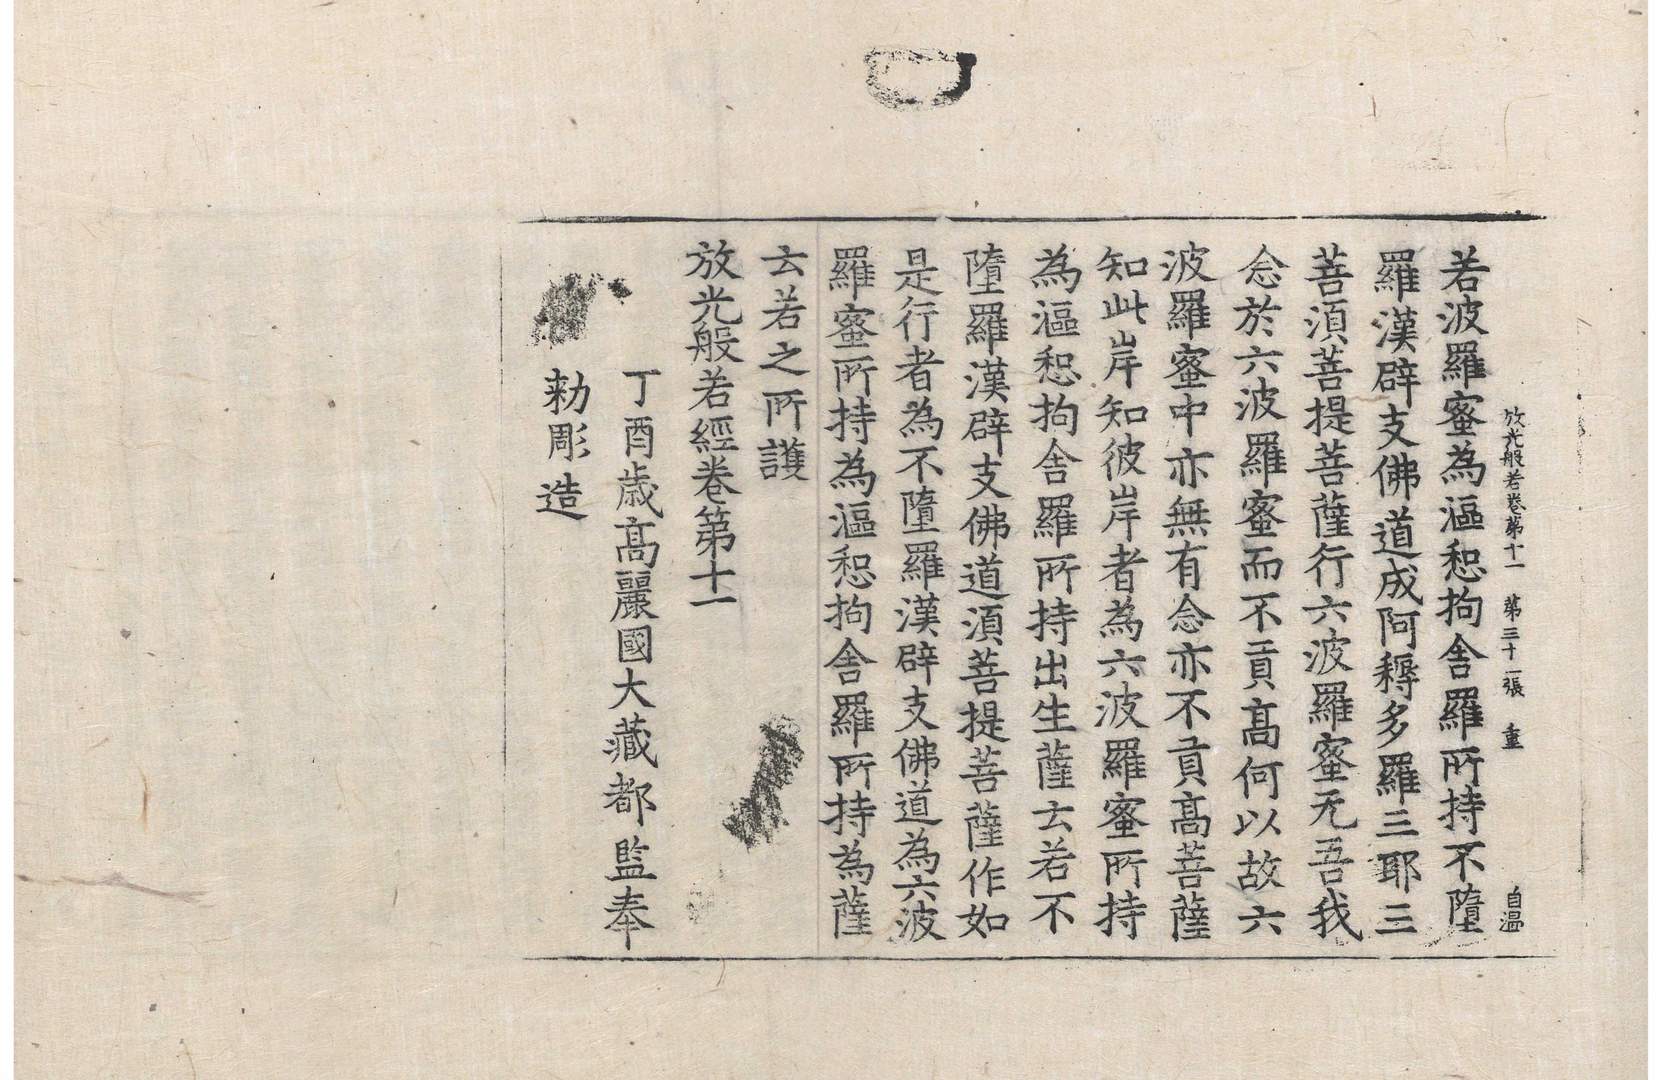 放光般若卷第十一 第三十一張 重 自温
若波羅蜜為漚惒拘舍羅所持不墮
羅漢辟支佛道成阿耨多羅三耶三
菩湏菩提菩薩行六波羅蜜无吾我
念於六波羅蜜而不貢髙何以故六
波羅蜜中亦無有念亦不貢髙菩薩
知此岸知彼岸者為六波羅蜜所持
為漚惒拘舍羅所持出生薩云若不
墮羅漢辟支佛道湏菩提菩薩作如
是行者為不墮羅漢辟支佛道為六波
羅蜜所持為漚惒拘舍羅所持為薩
云若之所護
放光般若經卷第十一
丁酉歳髙麗國大藏都監奉
勑彫造